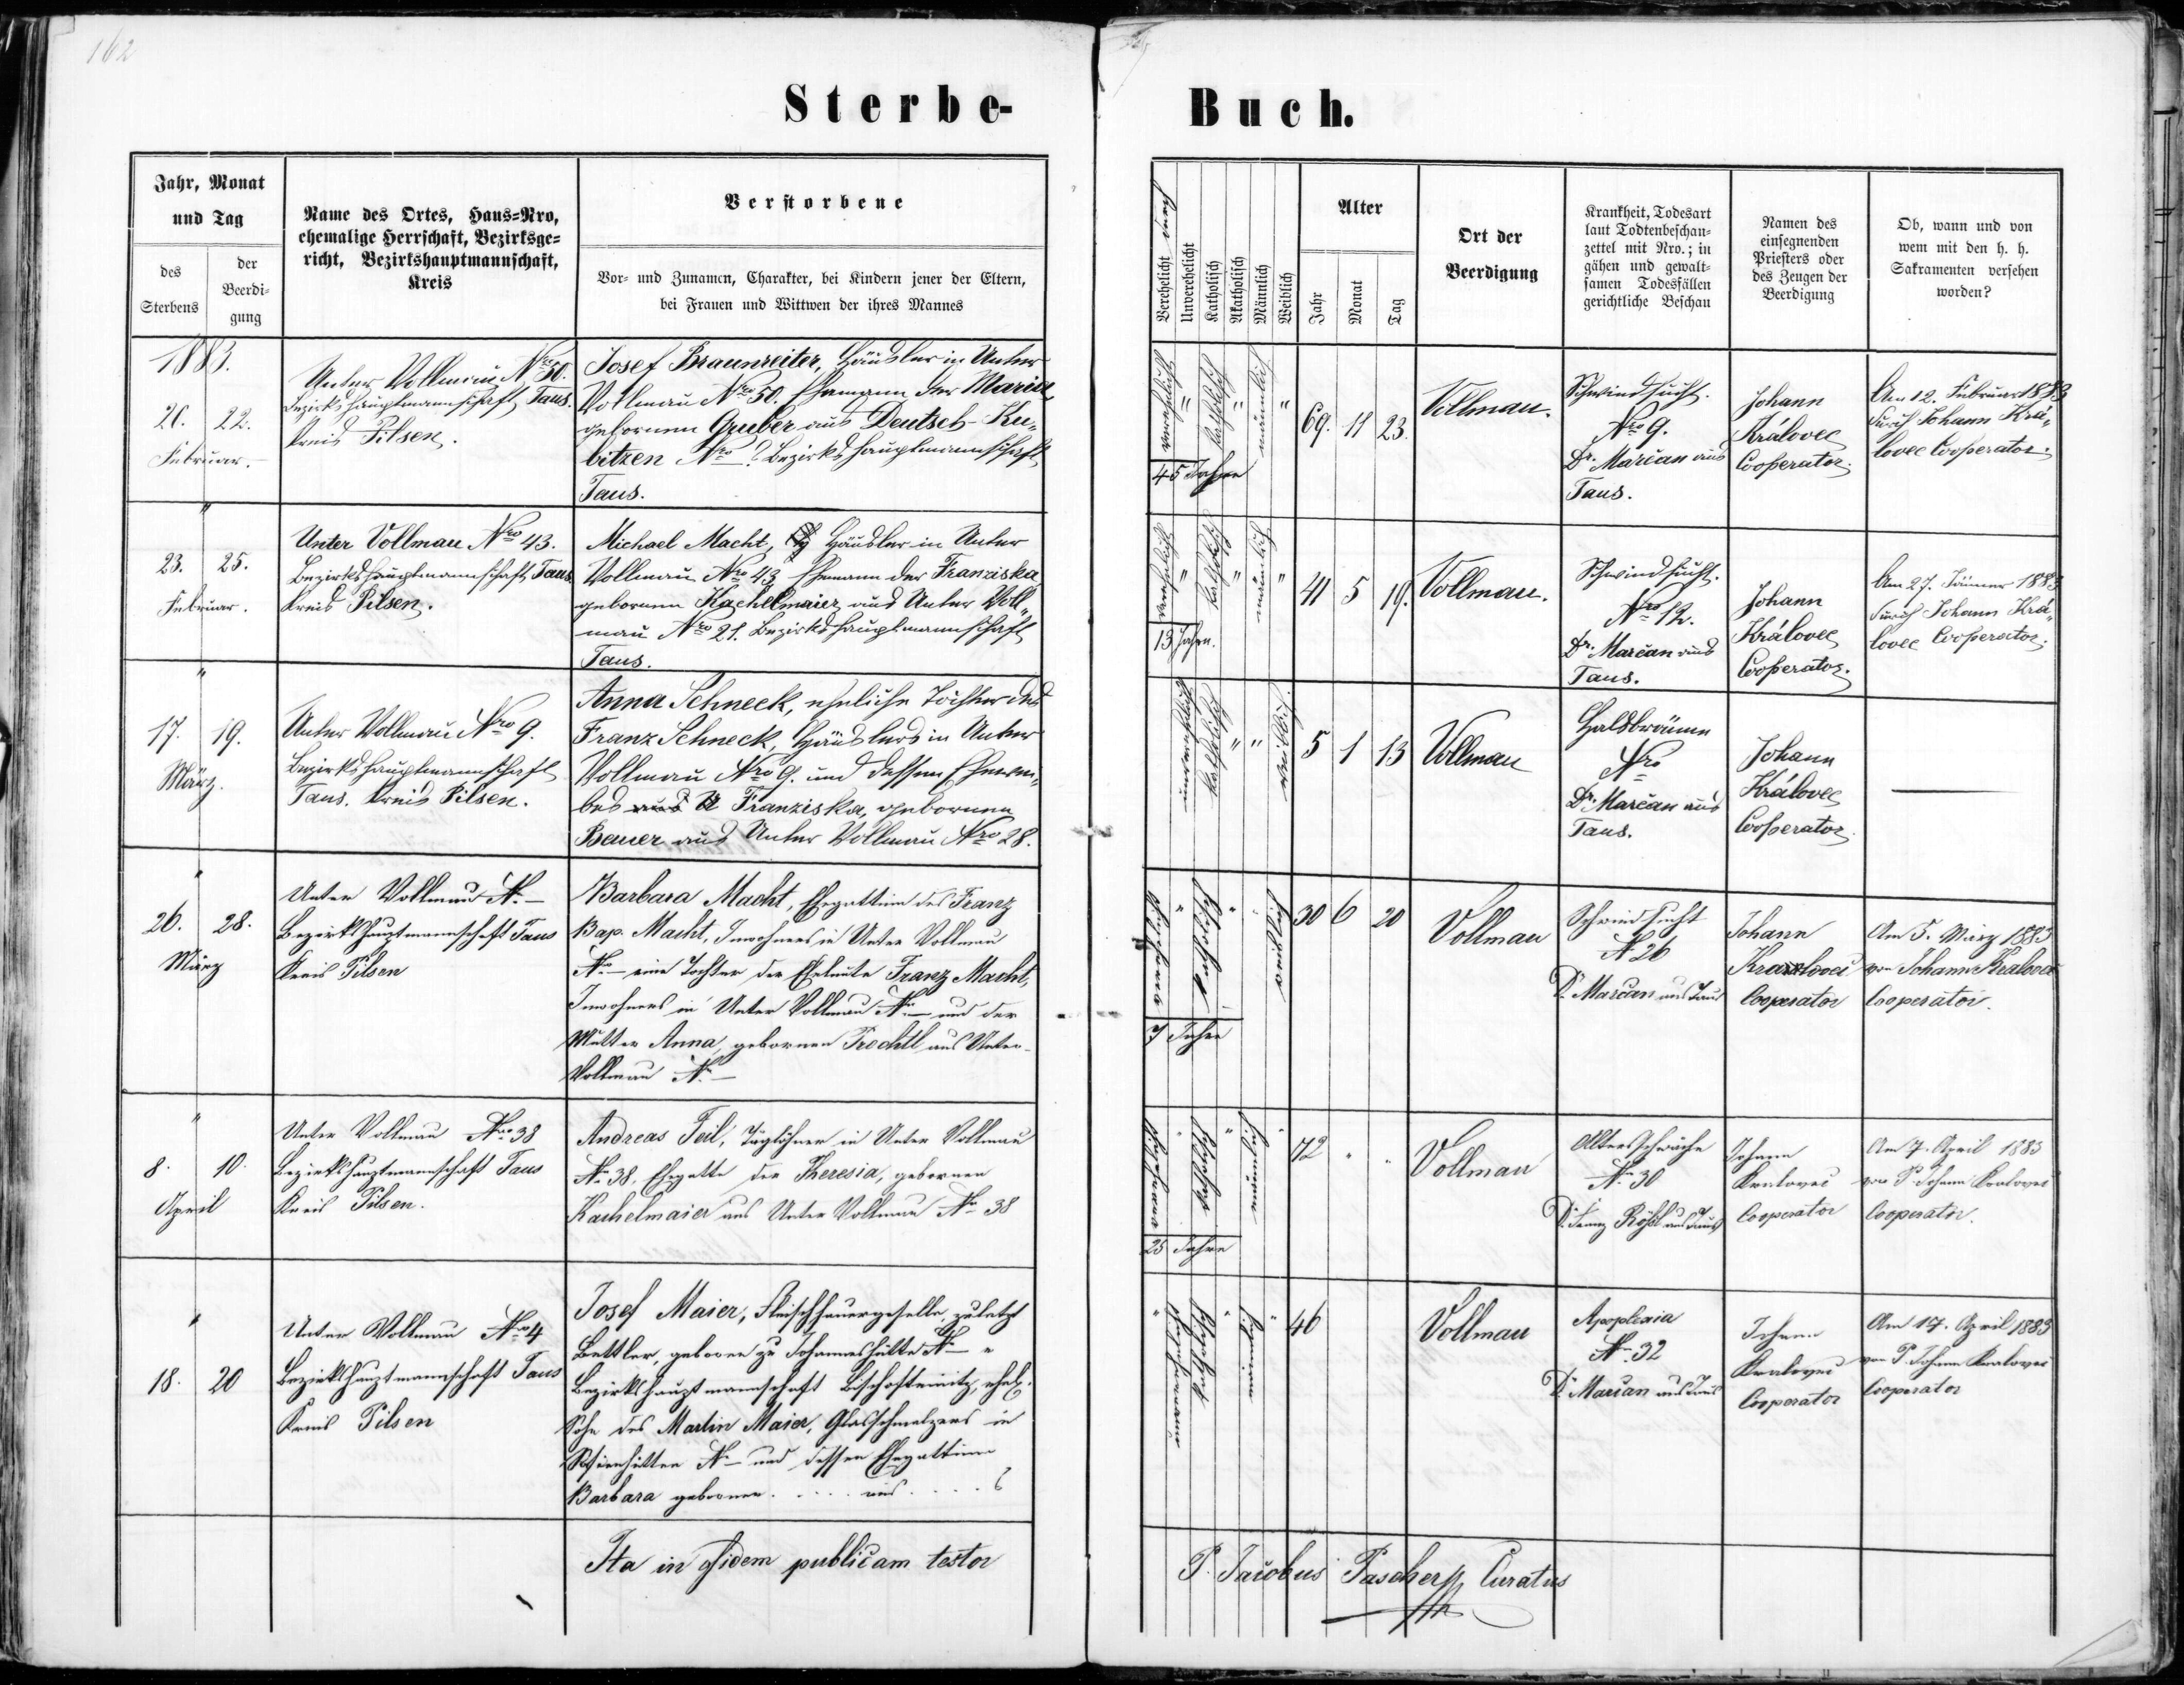 162
Sterbe-
Jahr, Monat
und Tag
des
Sterbens
der
Beerdi-
gung
Name des Ortes, Haus-Nro,
ehemalige Herrschaft, Bezirksge-
richt, Bezirkshauptmannschaft,
Kreis
Verstorbene
Vor- und Zunamen, Charakter, bei Kindern jener der Eltern,
bei Frauen und Wittwen der ihres Mannes
1883.
21. 22.
Februar.
Unter Vollmau Nro 50.
Bezirkshauptmannschaft Taus.
Kreis Pilsen.
Josef Braunreiter, Häusler in Unter
Vollmau Nro 50. Ehemann der Maria
gebornen Gruber aus Deutsch-Ku-
bitzen Nro ? Bezirkshauptmannschaft
Taus.
"
23. 25.
Februar.
Unter Vollmau Nro 43.
Bezirkshauptmannschaft Taus
Kreis Pilsen.
Michael Macht, Häusler in Unter
Vollmau Nro 43 Ehemann der Franziska
gebornen Kachelmaier aus Unter Voll-
mau Nro 21. Bezirkshauptmannschaft
Taus.
"
17. 19.
März.
Unter Vollmau Nro 9.
Bezirkshauptmannschaft
Taus. Kreis Pilsen.
Anna Schneck, eheliche Tochter des
Franz Schneck, Häuslers in Unter
Vollmau Nro 9. und dessen Ehewei-
bes aus U Franziska, gebornen
Bauer aus Unter Vollmau Nro 28.
"
26. 28.
März
Unter Vollmau N. —
Bezirkshauptmannschaft Taus
Kreis Pilsen
Barbara Macht, Ehegattin des Franz
Bap. Macht, Inwohners in Unter Vollmau
Nro — eine Tochter der Eheleute Franz Macht,
Inwohners in Unter Vollmau Nro — und der
Mutter Anna, gebornen Prechtl aus Unter-
Vollmau N. —
"
8. 10.
April
Unter Vollmau Nro 38
Bezirkshauptmannschaft Taus
Kreis Pilsen.
Andreas Feil, Taglöhner in Unter Vollmau
Nro 38, Ehegatte der Theresia, gebornen
Kachelmaier aus Unter Vollmau Nro 38
"
18. 20
Unter Vollmau Nro 4
Bezirkshauptmannschaft Taus
Kreis Pilsen
Josef Maier, Fleischhauergeselle, zuletzt
Bettler, geboren zu Johanneshütte N —
Bezirkshauptmannschaft Bischofteinitz, ehel.
Sohn des Martin Maier, Glasschmelzers in
N — und dessen Ehegattin
Barbara gebornen . . . . aus . . . . ?
Ita in fidem publicam testor
Buch.
Verehelicht
Unverehelicht
Katholisch
Akatholisch
Männlich
Weiblich
Alter
Jahr
Monat
Tag
Ort der
Beerdigung
Krankheit, Todesart
laut Todtenbeschau-
zettel mit Nro.; in
gähen und gewalt-
samen Todesfällen
gerichtliche Beschau
Namen des
einsegnenden
Priesters oder
des Zeugen der
Beerdigung
Ob, wann und von
wem mit den h. h.
Sakramenten versehen
worden?
verehelicht
"
katholisch
"
männlich
"
45 Jahre
69. 11 23.
Vollmau.
Schwindsucht.
Nro 9.
Dr. Marčan aus
Taus.
Johann
Královec
Cooperator.
Am 12. Februar 1883
durch Johann Krá-
lovec Cooperator.
verehelicht
"
katholisch
"
männlich
"
13 Jahre.
41 5 19.
Vollmau.
Schwindsucht.
Nro 12.
Dr. Marčan aus
Taus.
Johann
Královec
Cooperator.
Am 27. Jänner 1883
durch Johann Krá-
lovec Cooperator.
unverehelicht
katholisch
"
"
weiblich
5 1 13
Vollmau
Halsbräune
Nro
Dr. Marčan aus
Taus.
Johann
Královec
Cooperator.
—
verehelicht
"
katholisch
"
"
weiblich
7 Jahre
30 6 20
Vollmau
Schwindsucht
N 26
Dr. Marčan aus Taus
Johann
Kralovec
Cooperator
Am 5. März 1883
von Johann Kralovec
Cooperator.
verehelicht
"
katholisch
"
männlich
"
25 Jahre
72 " "
Vollmau
Altersschwäche
Nro 30
Dr. Franz Rößl aus Taus
Johann
Kralovec
Cooperator
Am 7. April 1883
von P. Johann Kralovec
Cooperator.
"
unverehelicht
katholisch
"
männlich
"
46
Vollmau
Apoplexia
Nro 32
Dr. Marčan aus Taus
Johann
Kralovec
Cooperator
Am 17. April 1883
von P. Johann Kralovec
Cooperator
P. Jacobus Pascher Curatus